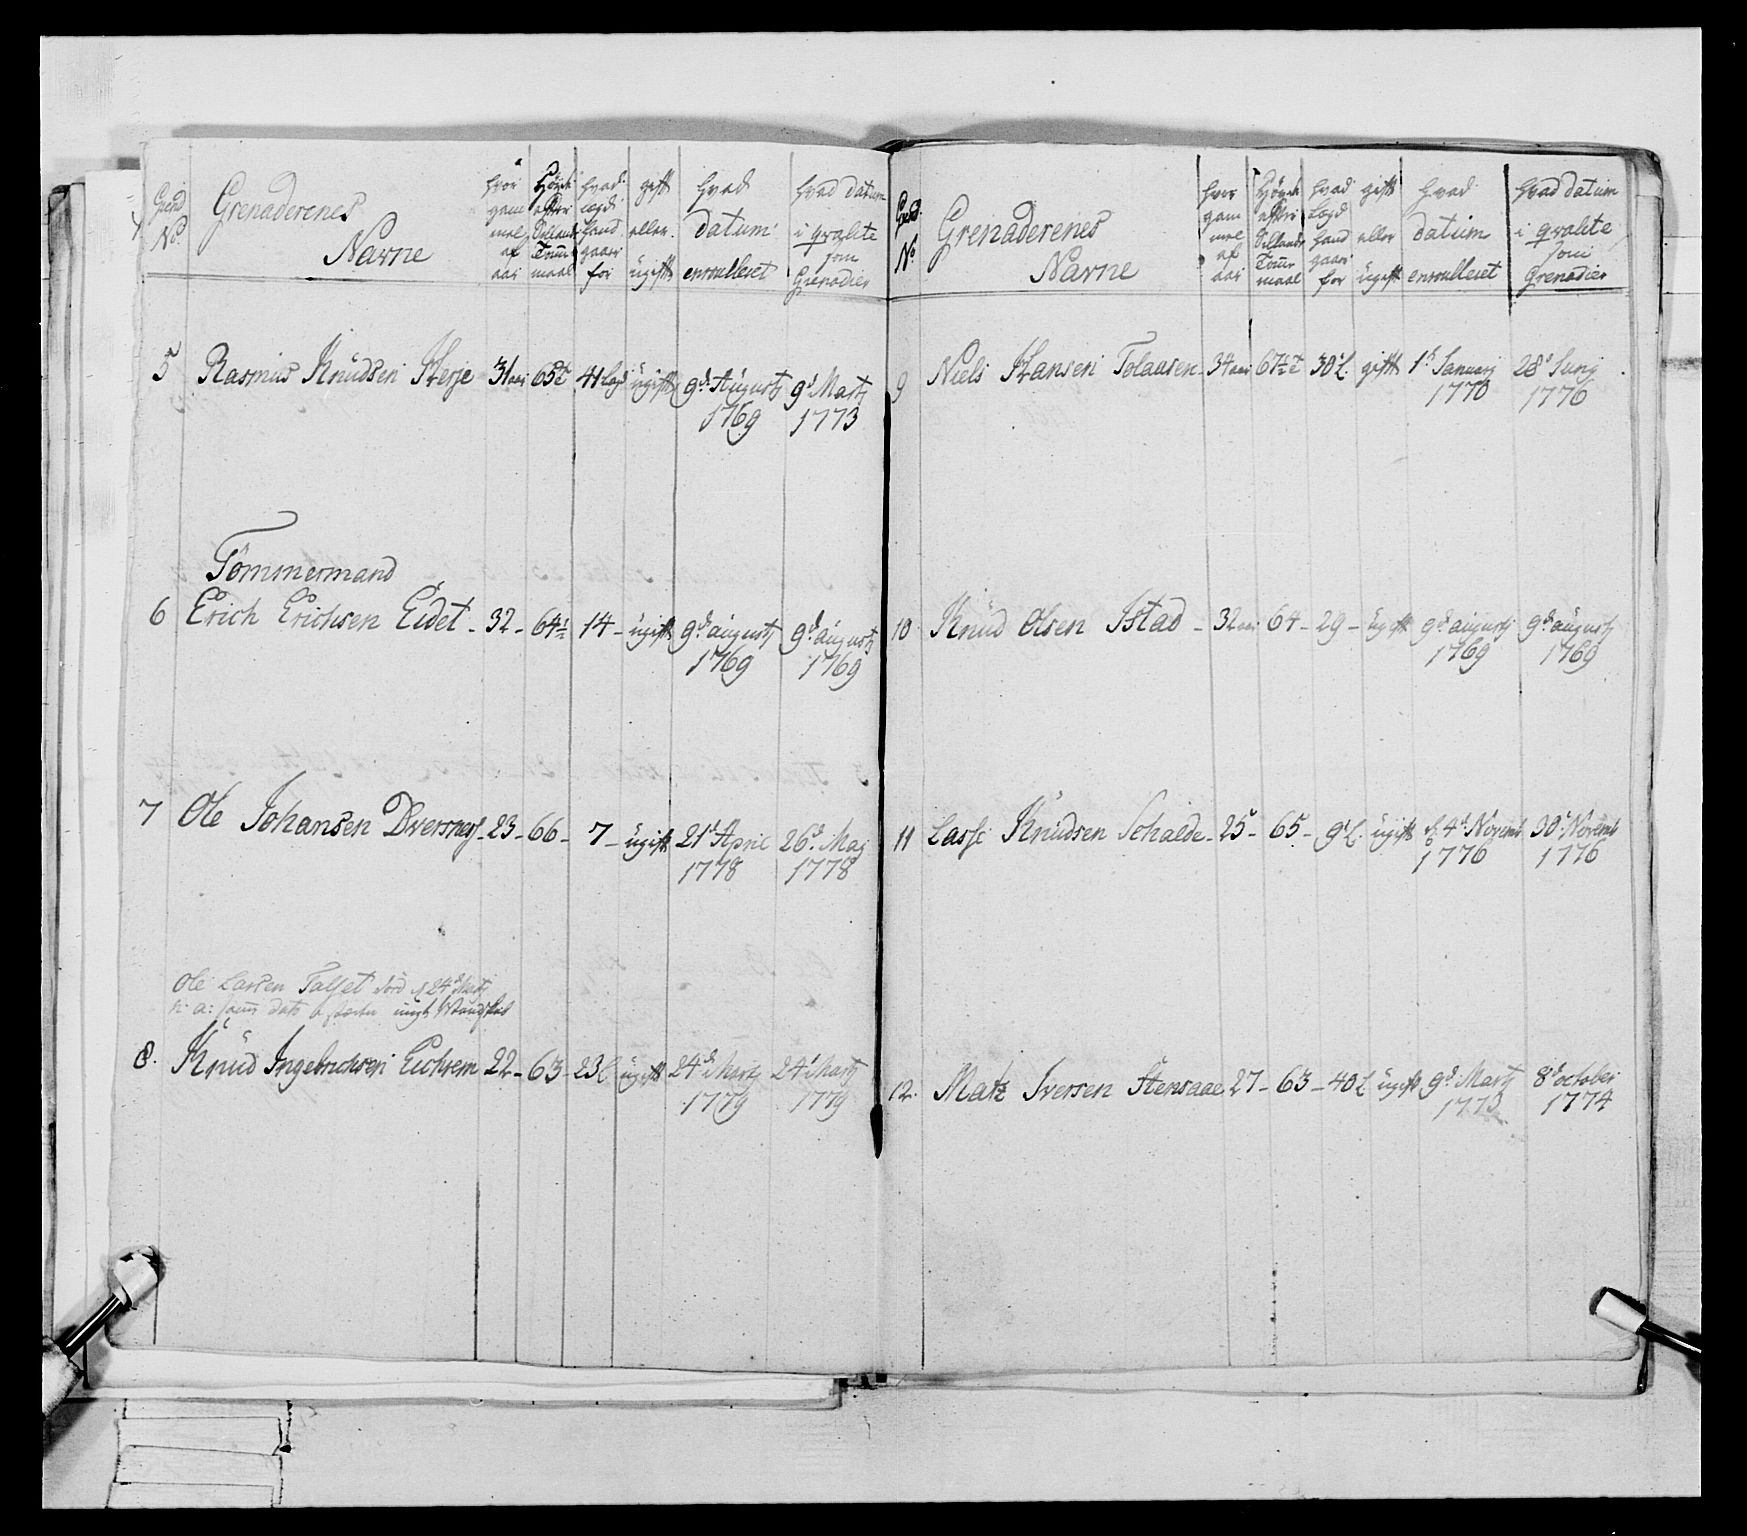 Grenaderenes
Navne
No.
hvor
gam
mel
af
aar
Høyde
efter
Siellands
Tom̄
maal
hvad
legd
hand
gaaer
for
gift
eller
ugift
hvad
datum
enroulleret
hvad datum
i qvalite
som
Grenadier
5 Rasmus Knudsen Herje 31 aar 65 41 Lægd ugift 9d. Augustj 9d. Martj
1769 1773
Tømmermand
6 Erich Erichsen Eidet - 32 - 64½ 14 - ugift 9d. augustj 9d. augustj
1769 1769
7 Ole Johansen Dversnes - 23 - 66 - 7 - ugift 21d. April 26d. Maj
1778 1778
Ole Larsen Talset død d. 24d. Martj
8. Knud Ingebrichtsen Eichrem 22 - 63 - 23 L ugift 24d. Martj 24d. Martj
1779 1779
Grenaderenes
Navne
No.
hvor
gam
mel
af
aar
Høyde
efter
Siellands
Tom̄
maal
hvad
Lægd
hand
gaaer
for
gift
eller
ugift
hvad
datum
enroulleret
hvad datum
i qvalite
som
Grenadier
9 Niels Hansen Tolaasen 34 aar 67½ 30 L. gift 1d. Januarj 28d. Junj
1770 1776
10 Knud Olsen Istad - 32 aar 64 - 29 - ugift 9d. augustj 9d. augustj
1769 1769
11 Lasse Knudsen Schalde - 25 - 65 - 9 L. ugift d. 4d. Novemb 30d. Novemb
1776 1776
12. Matz Iversen Stensaae 27 - 63 - 40 L ugift 9d. Martj 8d. october
1773 1774